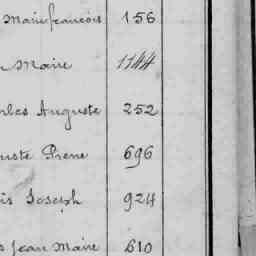 Mariefrancois 156
Marie 1144
rles Auguste 252
uste Pierre 696
is Joseph 924
s Jean Marie 610